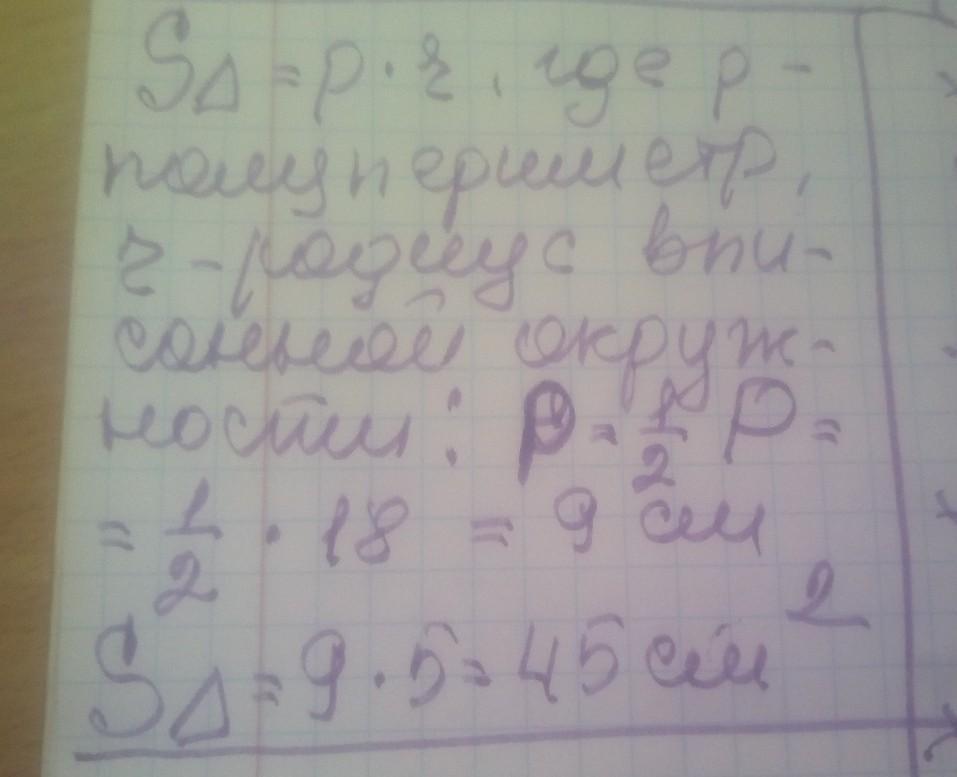 S△ = p · r, где p -
полупериметр,
r - радиус впи-
санной окруж-
ности: p = 1/2 P =
= 1/2 · 18 = 9 см
S△ = 9 · 5 = 45 см²